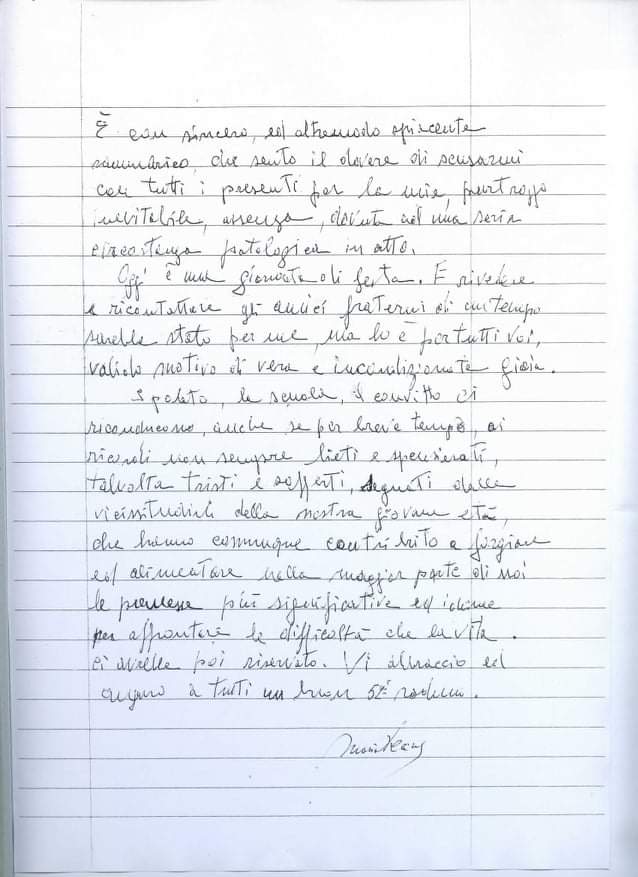 È con sincero, ed oltremodo spiacente
rammarico, che sento il dovere di scusarmi
con tutti i presenti per la mia, purtroppo
inevitabile, assenza, dovuta ad una seria
circostanza patologica in atto.
Oggi è una giornata di festa. E rivedere
e ricontattare gli amici fraterni di un tempo
sarebbe stato per me, ma lo è per tutti voi,
valido motivo di vera e incondizionata gioia.
Spoleto, la scuola, il convitto ci
riconducono, anche se per breve tempo, ai
ricordi non sempre lieti e spensierati,
talvolta tristi e sofferti, segnati dalle
vicissitudini della nostra giovane età,
che hanno comunque contribuito a forgiare
ed alimentare nella maggior parte di noi
le premesse più significative ed idonee
per affrontare le difficoltà che la vita
ci avrebbe poi riservato. Vi abbraccio ed
auguro a tutti un buon 5° raduno.